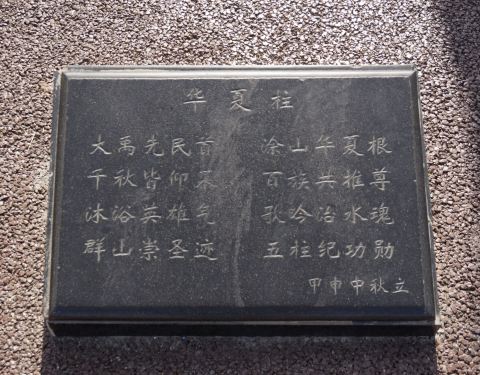 华夏柱
大禹先民首 涂山华夏根
千秋皆仰 百族共推尊
沐浴英雄气 歌吟治水魂
群山崇圣迹 五柱纪功勋
甲申中秋立